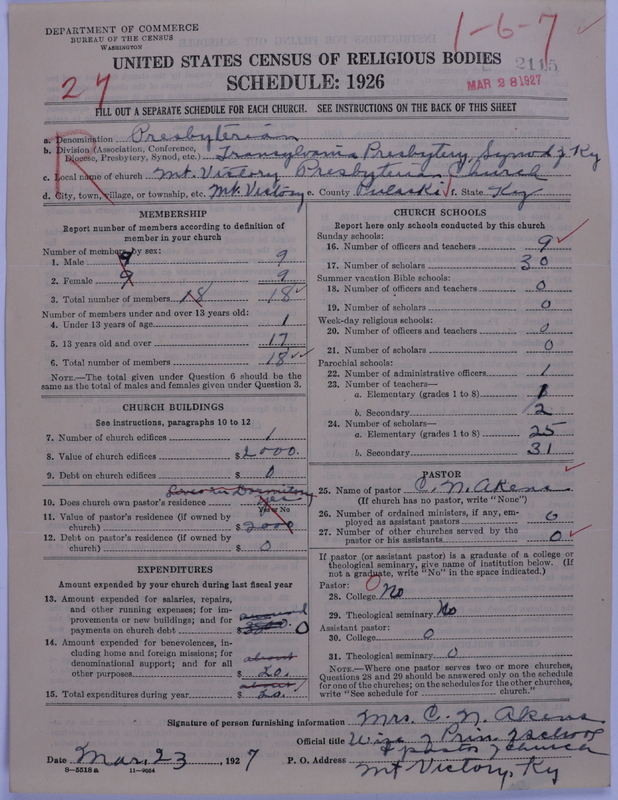 DEPARTMENT OF COMMERCE
BUREAU OF THE CENSUS
WASHINGTON
1-6-7
2115
MAR 28 1927
27
UNITED STATES CENSUS OF RELIGIOUS BODIES
SCHEDULE: 1926
FILL OUT A SEPARATE SCHEDULE FOR EACH CHURCH. SEE INSTRUCTIONS ON THE BACK OF THIS SHEET
R
a. Denomination Presbyterian
b. Division (Association, Conference, Diocese, Presbytery, Synod, etc.) Transylvania Presbytery, Synod of Ky
c. Local name of church Mt. Victory Presbyterian Church
d. City, town, village, or township, etc. Mt. Victory e. County Pulaski f. State Ky
MEMBERSHIP
Report number of members according to definition of
member in your church
Number of members by sex:
1. Male 9 9
2. Female 9 9
3. Total number of members 18 18
Number of members under and over 13 years old:
4. Under 13 years of age 1
5. 13 years old and over 17
6. Total number of members 18
NOTE.—The total given under Question 6 should be the
same as the total of males and females given under Question 3.
CHURCH BUILDINGS
See instructions, paragraphs 10 to 12
7. Number of church edifices 1
8. Value of church edifices $2000.
9. Debt on church edifices $ 0
Lives in Dormitory
10. Does church own pastor's residence?
Yes or No
11. Value of pastor's residence (if owned by
church) $ 2000
12. Debt on pastor's residence (if owned by
church) $ 0
EXPENDITURES
Amount expended by your church during last fiscal year
13. Amount expended for salaries, repairs,
and other running expenses; for im-
provements or new buildings; and for
payments on church debt $ 0
14. Amount expended for benevolences, in-
cluding home and foreign missions; for
denominational support; and for all about
other purposes $ 20.
about
15. Total expenditures during year $ 20.
CHURCH SCHOOLS
Report here only schools conducted by this church
Sunday schools:
16. Number of officers and teachers 9
17. Number of scholars 30
Summer vacation Bible schools:
18. Number of officers and teachers 0
19. Number of scholars 0
Week-day religious schools:
20. Number of officers and teachers 0
21. Number of scholars 0
Parochial schools:
22. Number of administrative officers 1
23. Number of teachers—
a. Elementary (grades 1 to 8) 1
b. Secondary 2
24. Number of scholars—
a. Elementary (grades 1 to 8) 25
b. Secondary 31
PASTOR
25. Name of pastor C. N. Akens
(If church has no pastor, write "None")
26. Number of ordained ministers, if any, em-
ployed as assistant pastors 0
27. Number of other churches served by the
pastor or his assistants 0
If pastor (or assistant pastor) is a graduate of a college or
theological seminary, give name of institution below. (If
not a graduate, write "No" in the space indicated.)
Pastor: 0
28. College No
29. Theological seminary No
Assistant pastor:
30. College 0
31. Theological seminary 0
NOTE.—Where one pastor serves two or more churches,
Questions 28 and 29 should be answered only on the schedule
for one of the churches; on the schedules for the other churches,
write "See schedule for church."
Signature of person furnishing information Mrs. C. N. Akens
Official title Wife of Prin. of school
& pastor of church
Date Mar. 23, 1927 P. O. Address Mt Victory, Ky
8-5518a 11-9054